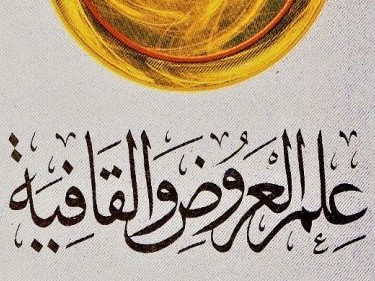 علم العروض والقافية